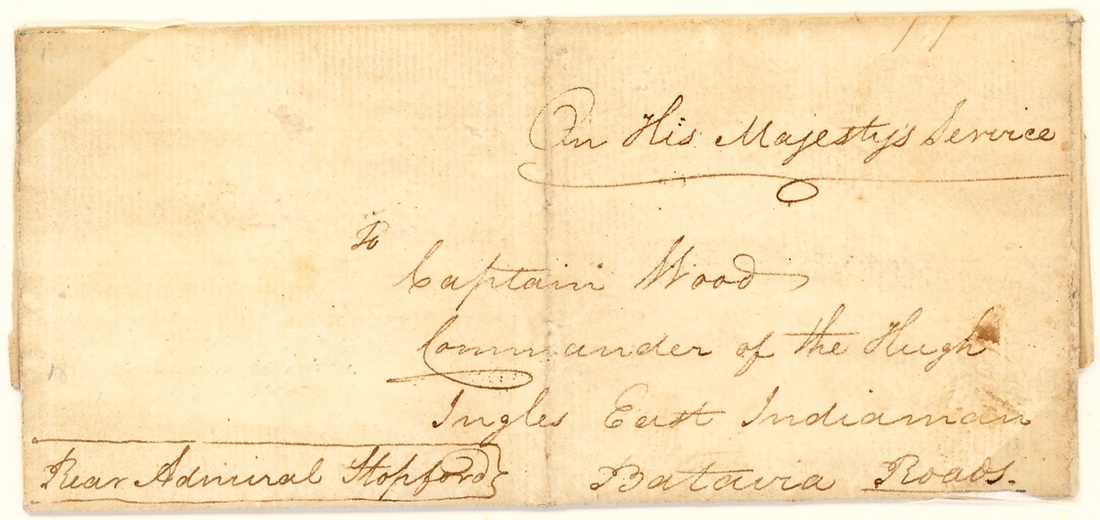 On His Majesty's Service
To
Captain Wood
Commander of the Hugh
Ingles East Indiaman
Batavia Roads.
Rear Admiral Stopford